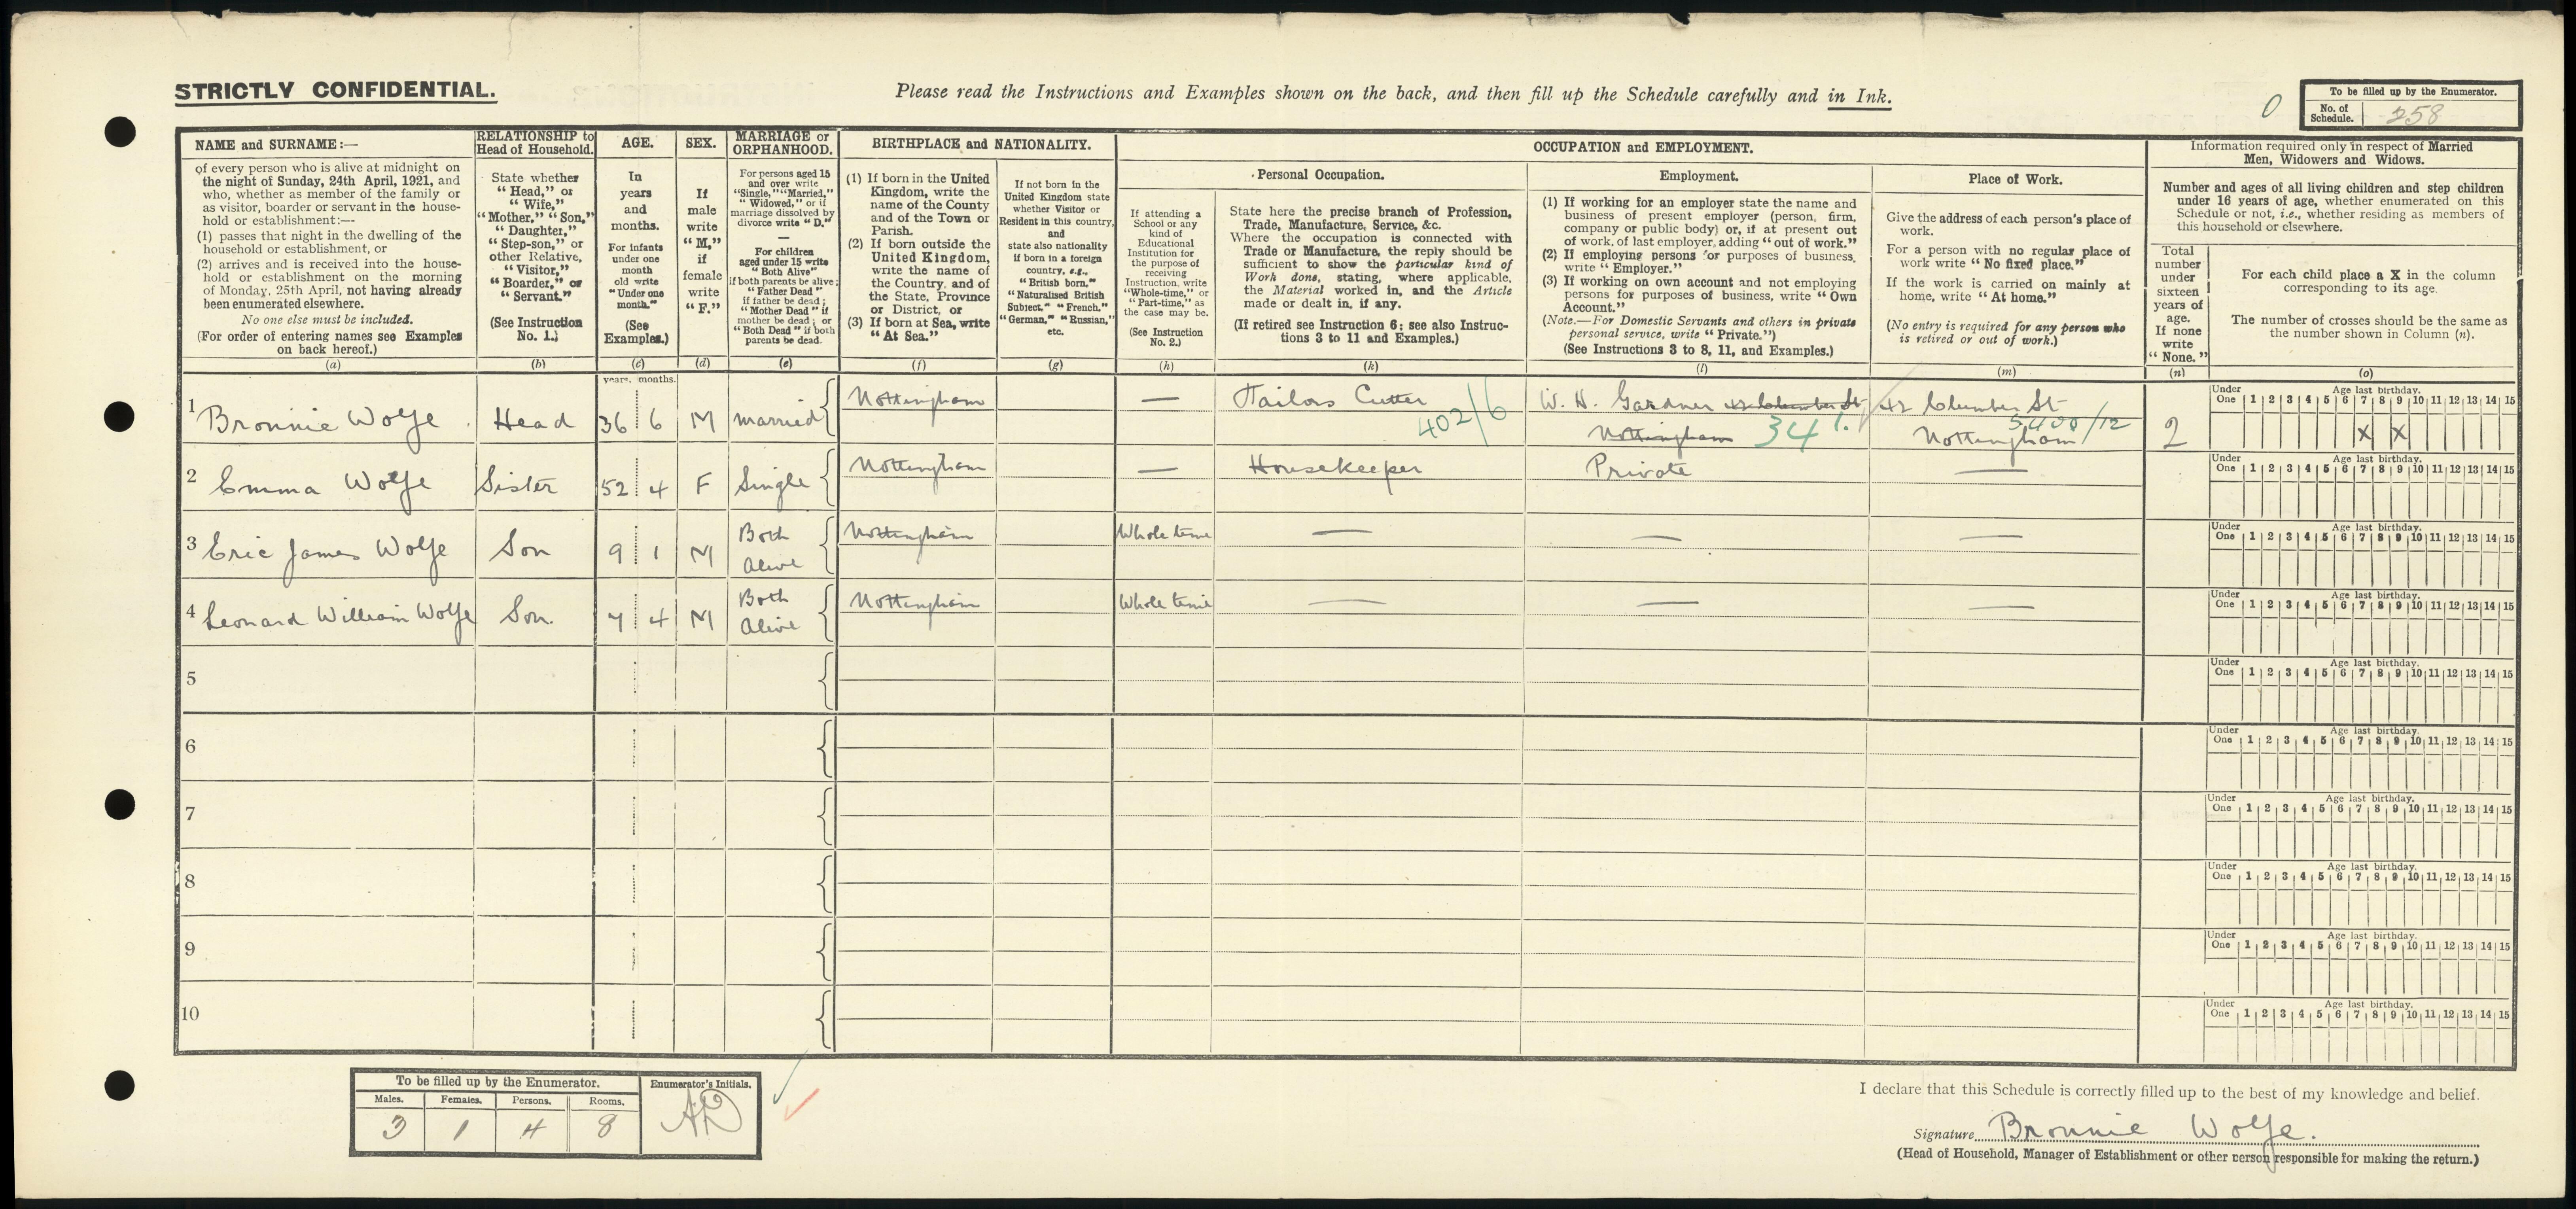 STRICTLY CONFIDENTIAL.
Please read the Instructions and Examples shown on the back, and then fill up the Schedule carefully and in Ink.
0
To be filled up by the Enumerator.
No. of Schedule. 258
NAME and SURNAME:—
of every person who is alive at midnight on
the night of Sunday, 24th April, 1921, and
who, whether as member of the family or
as visitor, boarder or servant in the house-
hold or establishment:—
(1) passes that night in the dwelling of the
household or establishment, or
(2) arrives and is received into the house-
hold or establishment on the morning
of Monday, 25th April, not having already
been enumerated elsewhere.
No one else must be included.
(For order of entering names see Examples
on back hereof.)
(a)
RELATIONSHIP to
Head of Household.
State whether
"Head," or
"Wife,"
"Mother," "Son,"
"Daughter,"
"Step-son," or
other Relative,
"Visitor,"
"Boarder," or
"Servant."
(See Instruction
No. 1.)
(b)
AGE.
In
years
and
months.
For infants
under one
month
old write
"Under one
month."
(See
Examples.)
(c)
SEX.
If
male
write
"M,"
if
female
write
"F."
(d)
MARRIAGE or
ORPHANHOOD.
For persons aged 15
and over write
"Single," "Married,"
"Widowed," or if
marriage dissolved by
divorce write "D."
—
For children
aged under 15 write
"Both Alive"
if both parents be alive;
"Father Dead"
if father be dead;
"Mother Dead" if
mother be dead; or
"Both Dead" if both
parents be dead.
(e)
BIRTHPLACE and NATIONALITY.
(1) If born in the United
Kingdom, write the
name of the County
and of the Town or
Parish.
(2) If born outside the
United Kingdom,
write the name of
the Country, and of
the State, Province
or District, or
(3) If born at Sea, write
"At Sea."
(f)
If not born in the
United Kingdom state
whether Visitor or
Resident in this country,
and
state also nationality
if born in a foreign
country, e.g.,
"British born,"
"Naturalised British
Subject," "French,"
"German," "Russian,"
etc.
(g)
OCCUPATION and EMPLOYMENT.
If attending a
School or any
kind of
Educational
Institution for
the purpose of
receiving
Instruction, write
"Whole-time," or
"Part-time," as
the case may be.
(See Instruction
No. 2.)
(h)
Personal Occupation.
State here the precise branch of Profession,
Trade, Manufacture, Service, &c.
Where the occupation is connected with
Trade or Manufacture, the reply should be
sufficient to show the particular kind of
Work done, stating, where applicable,
the Material worked in, and the Article
made or dealt in, if any.
(If retired see Instruction 6; see also Instruc-
tions 3 to 11 and Examples.)
(k)
Employment.
(1) If working for an employer state the name and
business of present employer (person, firm,
company or public body) or, if at present out
of work, of last employer, adding "out of work."
(2) If employing persons for purposes of business,
write "Employer."
(3) If working on own account and not employing
persons for purposes of business, write "Own
Account."
(Note.—For Domestic Servants and others in private
personal service, write "Private.")
(See Instructions 3 to 8, 11, and Examples.)
(l)
Place of Work.
Give the address of each person's place of
work.
For a person with no regular place of
work write "No fixed place."
If the work is carried on mainly at
home, write "At home."
(No entry is required for any person who
is retired or out of work.)
(m)
Information required only in respect of Married
Men, Widowers and Widows.
Number and ages of all living children and step children
under 16 years of age, whether enumerated on this
Schedule or not, i.e., whether residing as members of
this household or elsewhere.
Total
number
under
sixteen
years of
age.
If none
write
"None."
(n)
For each child place a X in the column
corresponding to its age.
The number of crosses should be the same as
the number shown in Column (n).
(o)
years. months.
1 Bronnie Wolfe. Head 36 6 M Married Nottingham — Tailors Cutter 402/6 W. H. Gardner 42 Clumber St Nottingham 34 1. 42 Clumber St Nottingham 5400/12 2
Under One 1 2 3 4 5 6 7 8 9 10 11 12 13 14 15
Age last birthday.
X X
2 Emma Wolfe Sister 52 4 F Single Nottingham — Housekeeper Private —
Under One 1 2 3 4 5 6 7 8 9 10 11 12 13 14 15
Age last birthday.
3 Eric James Wolfe Son 9 1 M Both Alive Nottingham Whole time — — —
Under One 1 2 3 4 5 6 7 8 9 10 11 12 13 14 15
Age last birthday.
4 Leonard William Wolfe Son. 7 4 M Both Alive Nottingham Whole time — — —
Under One 1 2 3 4 5 6 7 8 9 10 11 12 13 14 15
Age last birthday.
5
Under One 1 2 3 4 5 6 7 8 9 10 11 12 13 14 15
Age last birthday.
6
Under One 1 2 3 4 5 6 7 8 9 10 11 12 13 14 15
Age last birthday.
7
Under One 1 2 3 4 5 6 7 8 9 10 11 12 13 14 15
Age last birthday.
8
Under One 1 2 3 4 5 6 7 8 9 10 11 12 13 14 15
Age last birthday.
9
Under One 1 2 3 4 5 6 7 8 9 10 11 12 13 14 15
Age last birthday.
10
Under One 1 2 3 4 5 6 7 8 9 10 11 12 13 14 15
Age last birthday.
To be filled up by the Enumerator.
Enumerator's Initials.
Males. Females. Persons. Rooms.
3 1 4 8
I declare that this Schedule is correctly filled up to the best of my knowledge and belief.
Signature Bronnie Wolfe.
(Head of Household, Manager of Establishment or other person responsible for making the return.)